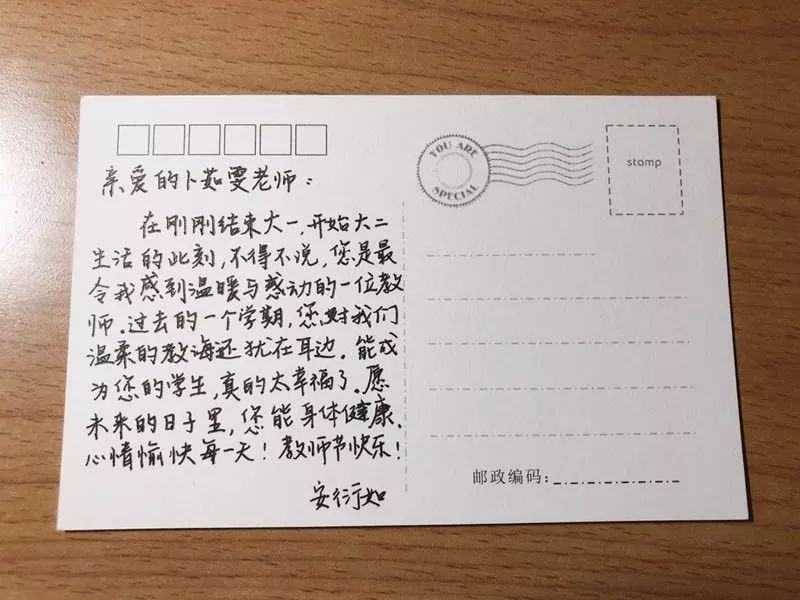 亲爱的卜茹雯老师：
在刚刚结束大一，开始大二
生活的此刻，不得不说，您是最
令我感到温暖与感动的一位教
师。过去的一个学期，您对我们
温柔的教诲还犹在耳边。能成
为您的学生，真的太幸福了。愿
未来的日子里，您能身体健康，
心情愉快每一天！教师节快乐！
安衍如
YOU ARE
SPECIAL
stamp
邮政编码：